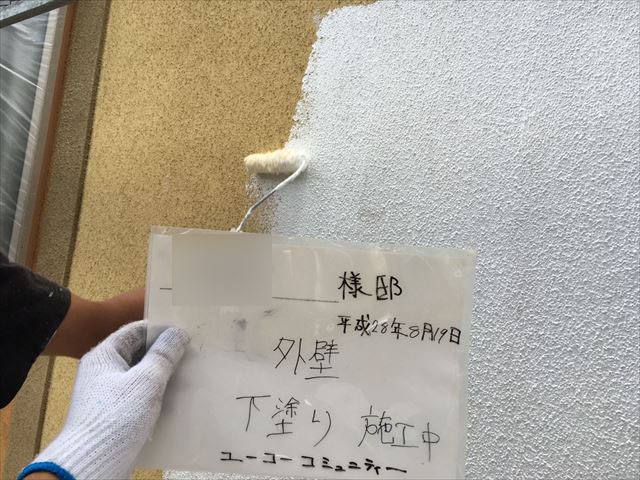 様邸
平成28年8月19日
外壁
下塗り 施工中
ユーコーコミュニティー